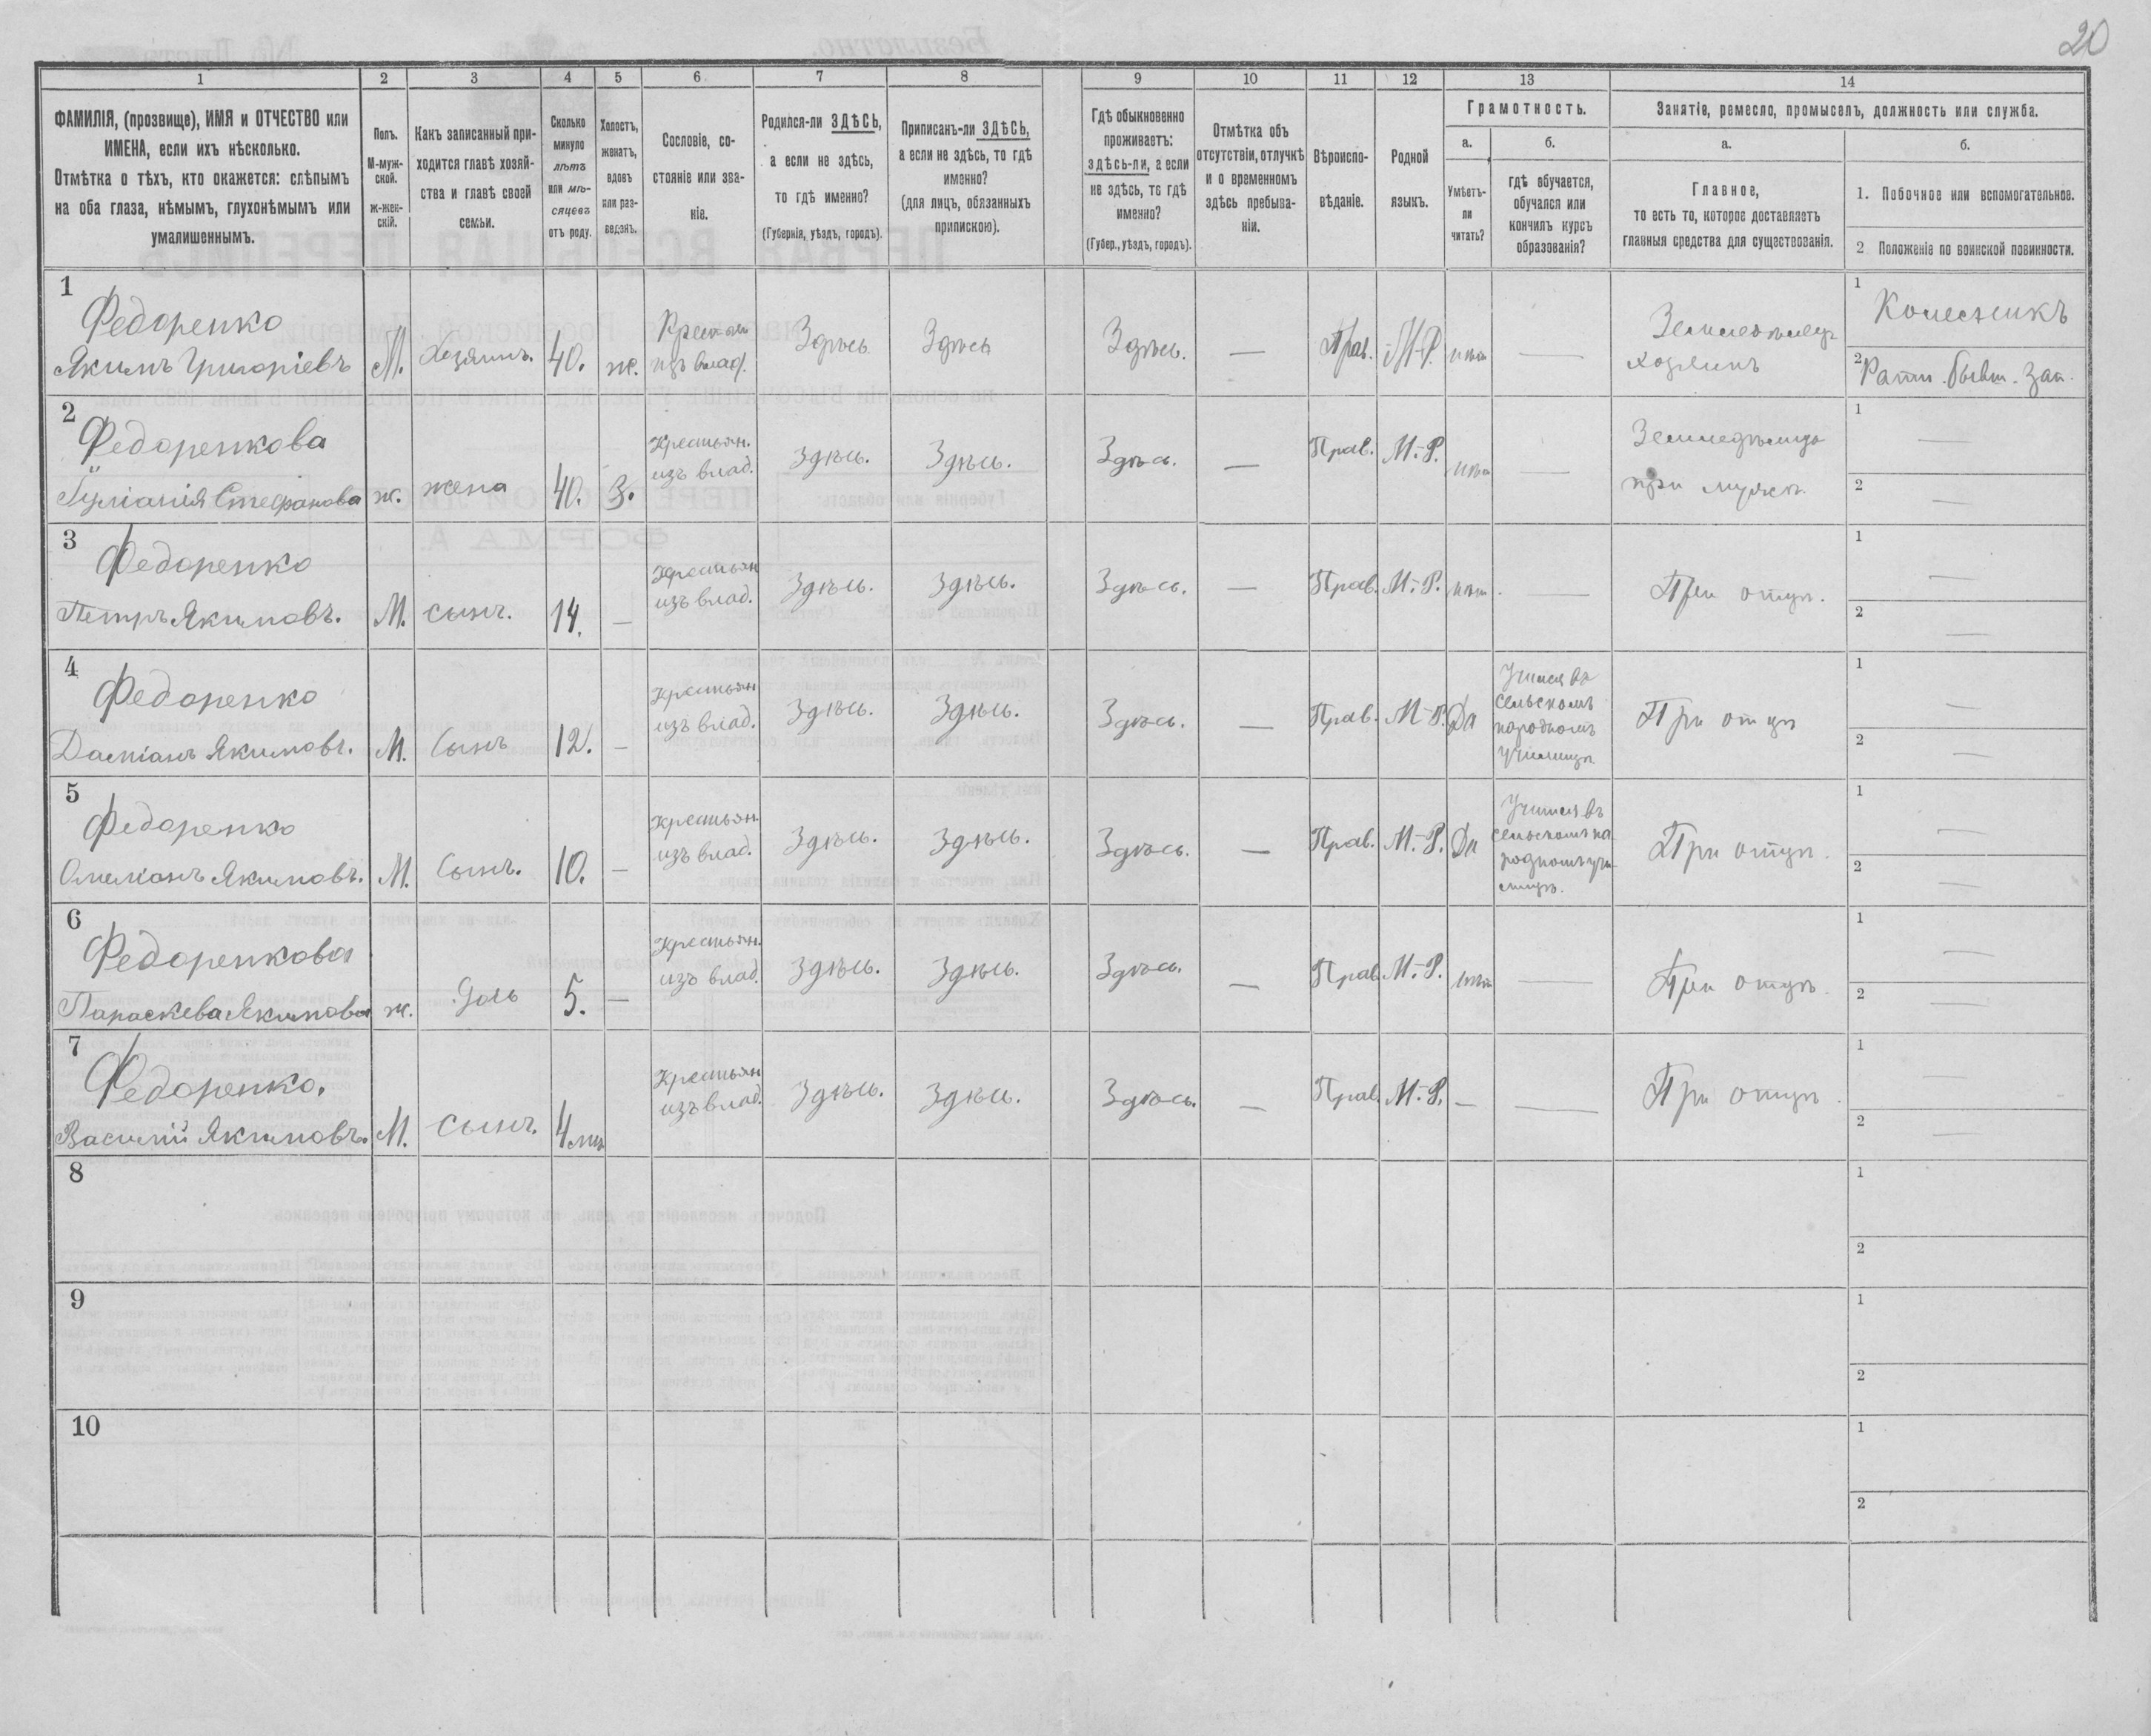 20
1 2 3 4 5 6 7 8 9 10 11 12 13 14
ФАМИЛІЯ, (прозвище), ИМЯ и ОТЧЕСТВО или
ИМЕНА, если ихъ нѣсколько.
Отмѣтка о тѣхъ, кто окажется: слѣпымъ
на оба глаза, нѣмымъ, глухонѣмымъ или
умалишеннымъ.
Полъ.
М-муж-
ской.
ж-жен-
скій.
Какъ записанный при-
ходится главѣ хозяй-
ства и главѣ своей
семьи.
Сколько
минуло
лѣтъ
или мѣ-
сяцевъ
отъ роду.
Холостъ,
женатъ,
вдовъ
или раз-
веденъ.
Сословіе, со-
стояніе или зва-
ніе.
Родился-ли ЗДѢСЬ,
а если не здѣсь,
то гдѣ именно?
(Губернія, уѣздъ, городъ).
Приписанъ-ли ЗДѢСЬ,
а если не здѣсь, то гдѣ
именно?
(для лицъ, обязанныхъ
припискою).
Гдѣ обыкновенно
проживаетъ:
здѣсь-ли, а если
не здѣсь, то гдѣ
именно?
(Губер., уѣздъ, городъ).
Отмѣтка объ
отсутствіи, отлучкѣ
и о временномъ
здѣсь пребыва-
ніи.
Вѣроиспо-
вѣданіе.
Родной
языкъ.
Грамотность.
а.
Умѣетъ-
ли
читать?
б.
гдѣ обучается,
обучался или
кончилъ курсъ
образованія?
Занятіе, ремесло, промыселъ, должность или служба.
а.
Главное,
то есть то, которое доставляетъ
главныя средства для существованія.
б.
1. Побочное или вспомогательное.
2 Положеніе по воинской повинности.
1
Федоренко
Якимъ Григоріевъ
М.
Хозяинъ.
40.
ж.
Крестьян
изъ влад.
Здѣсь
Здѣсь
Здѣсь.
—
Прав.
М-Р.
нѣт
—
Земледѣлец
хозяинъ
1
Колесникъ
2
Ратн. бывш. зап.
2
Федоренкова
Стефанова
ж.
жена
40.
З.
Крестьян.
изъ влад.
Здѣсь.
Здѣсь.
Здѣсь.
—
Прав.
М.-Р.
нѣт
—
Земледѣлица
при мужѣ
1
—
2
—
3
Федоренко
Петръ Якимовъ.
М.
сынъ.
14.
—
Крестьян
изъ влад.
Здѣсь.
Здѣсь.
Здѣсь.
—
Прав.
М.-Р.
нѣт.
—
При отцѣ.
1
—
2
—
4
Федоренко
Даміанъ Якимовъ.
М.
Сынъ
12.
—
Крестьян
изъ влад.
Здѣсь.
Здѣсь.
Здѣсь.
—
Прав.
М-Р.
Да
Учился въ
сельскомъ
народномъ
училищѣ
При отцѣ
1
—
2
—
5
Федоренко
Омельянъ Якимовъ.
М.
Сынъ.
10.
—
Крестьян
изъ влад.
Здѣсь.
Здѣсь.
Здѣсь.
—
Прав.
М.-Р.
Да
Учился въ
сельскомъ на
родномъ учи-
лищѣ.
При отцѣ.
1
—
2
—
6
Федоренкова
Параскева Якимова
ж.
Дочь
5.
—
Крестьян.
изъ влад.
Здѣсь.
Здѣсь.
Здѣсь.
—
Прав.
М.-Р.
нѣт
—
При отцѣ.
1
—
2
—
7
Федоренко.
Василій Якимовъ.
М.
сынъ.
4 мѣс
Крестьян
изъ влад.
Здѣсь.
Здѣсь.
Здѣсь.
—
Прав.
М.-Р.
—
—
При отцѣ.
1
—
2
—
8
1
2
9
1
2
10
1
2